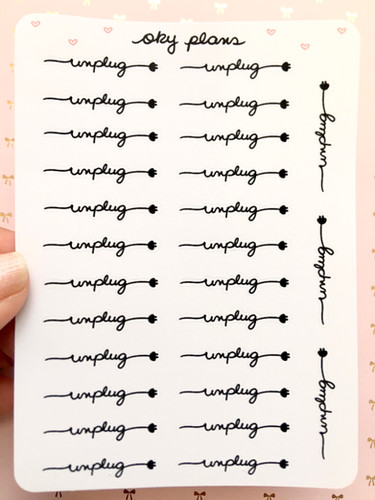 oky plans
unplug unplug
unplug unplug
unplug unplug
unplug unplug
unplug unplug
unplug unplug
unplug unplug
unplug unplug
unplug unplug
unplug unplug
unplug unplug
unplug unplug
unplug
unplug
unplug